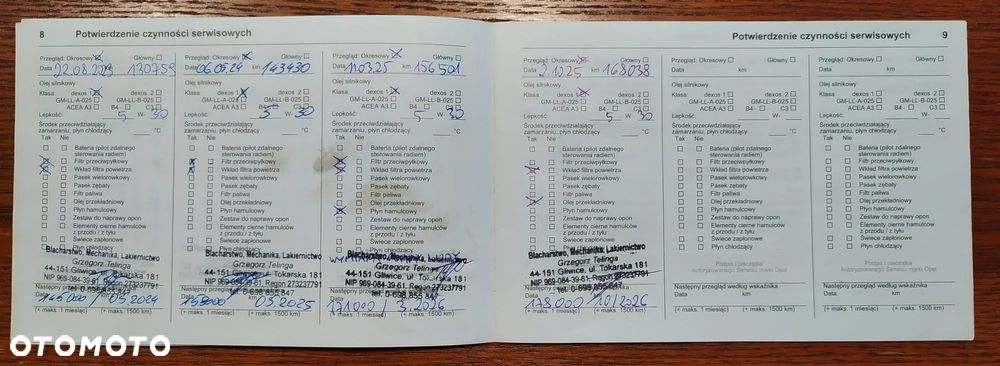 8 Potwierdzenie czynności serwisowych
Przegląd: Okresowy Główny
Data 22.08.2023 130759
Olej silnikowy
Klasa: dexos 1 dexos 2
GM-LL-A-025 GM-LL-B-025
ACEA A3 B4 - C3
Lepkość: 5 W- 30
Środek przeciwdziałający
zamarzaniu, płyn chłodzący °C
Tak Nie
Bateria (pilot zdalnego
sterowania radiem)
Filtr przeciwpyłkowy
Wkład filtra powietrza
Pasek wielorowkowy
Pasek zębaty
Filtr paliwa
Olej przekładniowy
Płyn hamulcowy
Zestaw do naprawy opon
Elementy cierne hamulców
z przodu / z tyłu
Świece zapłonowe
Płyn chłodzący
Blacharstwo, Mechanika, Lakiernictwo
Grzegorz Telinga
44-151 Gliwice, ul. Tokarska 181
NIP 969-084-39-61, Regon 273237791
tel. 0-698 855 847
Data
145000 / 05.2024
(+ maks. 1 miesiąc) (+ maks. 1500 km)
Przegląd: Okresowy Główny
Data 06.05.24 km 143430
Olej silnikowy
Klasa: dexos 1 dexos 2
GM-LL-A-025 GM-LL-B-025
ACEA A3 B4 - C3
Lepkość: 5 W- 30
Środek przeciwdziałający
zamarzaniu, płyn chłodzący °C
Tak Nie
Bateria (pilot zdalnego
sterowania radiem)
Filtr przeciwpyłkowy
Wkład filtra powietrza
Pasek wielorowkowy
Pasek zębaty
Filtr paliwa
Olej przekładniowy
Płyn hamulcowy
Zestaw do naprawy opon
Elementy cierne hamulców
z przodu / z tyłu
Świece zapłonowe
Płyn chłodzący
Blacharstwo, Mechanika, Lakiernictwo
Grzegorz Telinga
44-151 Gliwice, ul. Tokarska 181
NIP 969-084-39-61, Regon 273237791
tel. 0-698 855 847
Data
158000 05.2025
(+ maks. 1 miesiąc) (+ maks. 1500 km)
Przegląd: Okresowy Główny
Data 11.03.25 km 156501
Olej silnikowy
Klasa: dexos 1 dexos 2
GM-LL-A-025 GM-LL-B-025
ACEA A3 B4 - C3
Lepkość: 5 W- 30
Środek przeciwdziałający
zamarzaniu, płyn chłodzący °C
Tak Nie
Bateria (pilot zdalnego
sterowania radiem)
Filtr przeciwpyłkowy
Wkład filtra powietrza
Pasek wielorowkowy
Pasek zębaty
Filtr paliwa
Olej przekładniowy
Płyn hamulcowy
Zestaw do naprawy opon
Elementy cierne hamulców
z przodu / z tyłu
Świece zapłonowe
Płyn chłodzący
Blacharstwo, Mechanika, Lakiernictwo
Grzegorz Telinga
44-151 Gliwice, ul. Tokarska 181
NIP 969-084-39-61, Regon 273237791
tel. 0-698 855 847
Data
171000 / 3.2026
(+ maks. 1 miesiąc) (+ maks. 1500 km)
Potwierdzenie czynności serwisowych 9
Przegląd: Okresowy Główny
Data 2.10.25 km 168038
Olej silnikowy
Klasa: dexos 1 dexos 2
GM-LL-A-025 GM-LL-B-025
ACEA A3 B4 - C3
Lepkość: 5 W- 30
Środek przeciwdziałający
zamarzaniu, płyn chłodzący °C
Tak Nie
Bateria (pilot zdalnego
sterowania radiem)
Filtr przeciwpyłkowy
Wkład filtra powietrza
Pasek wielorowkowy
Pasek zębaty
Filtr paliwa
Olej przekładniowy
Płyn hamulcowy
Zestaw do naprawy opon
Elementy cierne hamulców
z przodu / z tyłu
Świece zapłonowe
Płyn chłodzący
Blacharstwo, Mechanika, Lakiernictwo
Grzegorz Telinga
44-151 Gliwice, ul. Tokarska 181
NIP 969-084-39-61, Regon 273237791
tel. 0-698 855 847
Data
178000 / 10/2026
(+ maks. 1 miesiąc) (+ maks. 1500 km)
Przegląd: Okresowy Główny
Data km
Olej silnikowy
Klasa: dexos 1 dexos 2
GM-LL-A-025 GM-LL-B-025
ACEA A3 B4 - C3
Lepkość: W-
Środek przeciwdziałający
zamarzaniu, płyn chłodzący °C
Tak Nie
Bateria (pilot zdalnego
sterowania radiem)
Filtr przeciwpyłkowy
Wkład filtra powietrza
Pasek wielorowkowy
Pasek zębaty
Filtr paliwa
Olej przekładniowy
Płyn hamulcowy
Zestaw do naprawy opon
Elementy cierne hamulców
z przodu / z tyłu
Świece zapłonowe
Płyn chłodzący
Podpis i pieczątka
Autoryzowanego Serwisu marki Opel
Następny przegląd według wskaźnika
Data km
(+ maks. 1 miesiąc) (+ maks. 1500 km)
Przegląd: Okresowy Główny
Data km
Olej silnikowy
Klasa: dexos 1 dexos 2
GM-LL-A-025 GM-LL-B-025
ACEA A3 B4 - C3
Lepkość: W-
Środek przeciwdziałający
zamarzaniu, płyn chłodzący °C
Tak Nie
Bateria (pilot zdalnego
sterowania radiem)
Filtr przeciwpyłkowy
Wkład filtra powietrza
Pasek wielorowkowy
Pasek zębaty
Filtr paliwa
Olej przekładniowy
Płyn hamulcowy
Zestaw do naprawy opon
Elementy cierne hamulców
z przodu / z tyłu
Świece zapłonowe
Płyn chłodzący
Podpis i pieczątka
Autoryzowanego Serwisu marki Opel
Następny przegląd według wskaźnika
Data km
(+ maks. 1 miesiąc) (+ maks. 1500 km)
OTOMOTO